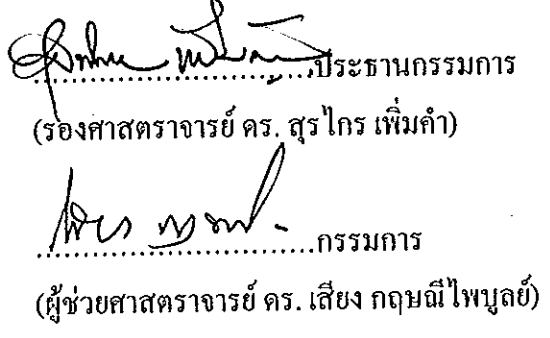 ประธานกรรมการ
(รองศาสตราจารย์ ดร. สุรไกร เพิ่มคำ)
กรรมการ
(ผู้ช่วยศาสตราจารย์ ดร. เสียง กฤษณีไพบูลย์)